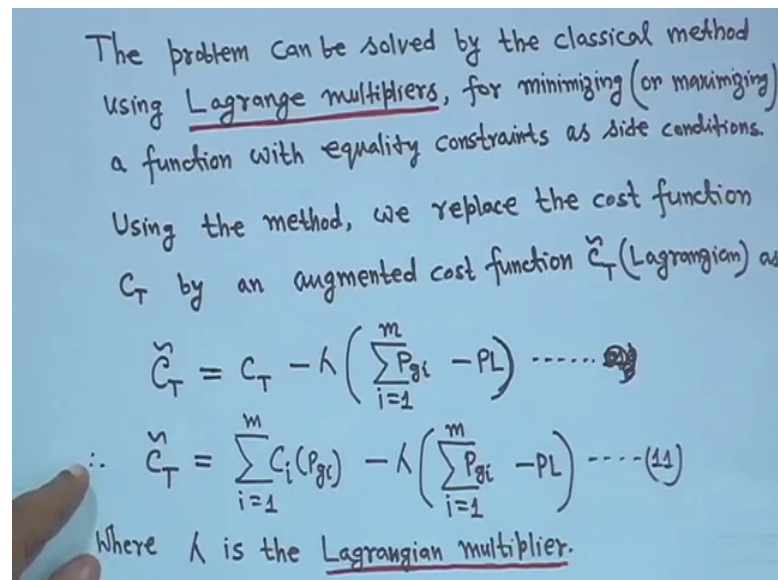 The problem can be solved by the classical method
using Lagrange multipliers, for minimizing (or maximizing)
a function with equality constraints as side conditions.
Using the method, we replace the cost function
C_T by an augmented cost function C̃_T (Lagrangian) as
C̃_T = C_T - λ(∑_{i=1}^{m} P_{gi} - PL) ------
∴ C̃_T = ∑_{i=1}^{m} C_i(P_{gi}) - λ(∑_{i=1}^{m} P_{gi} - PL) ----(11)
Where λ is the Lagrangian multiplier.